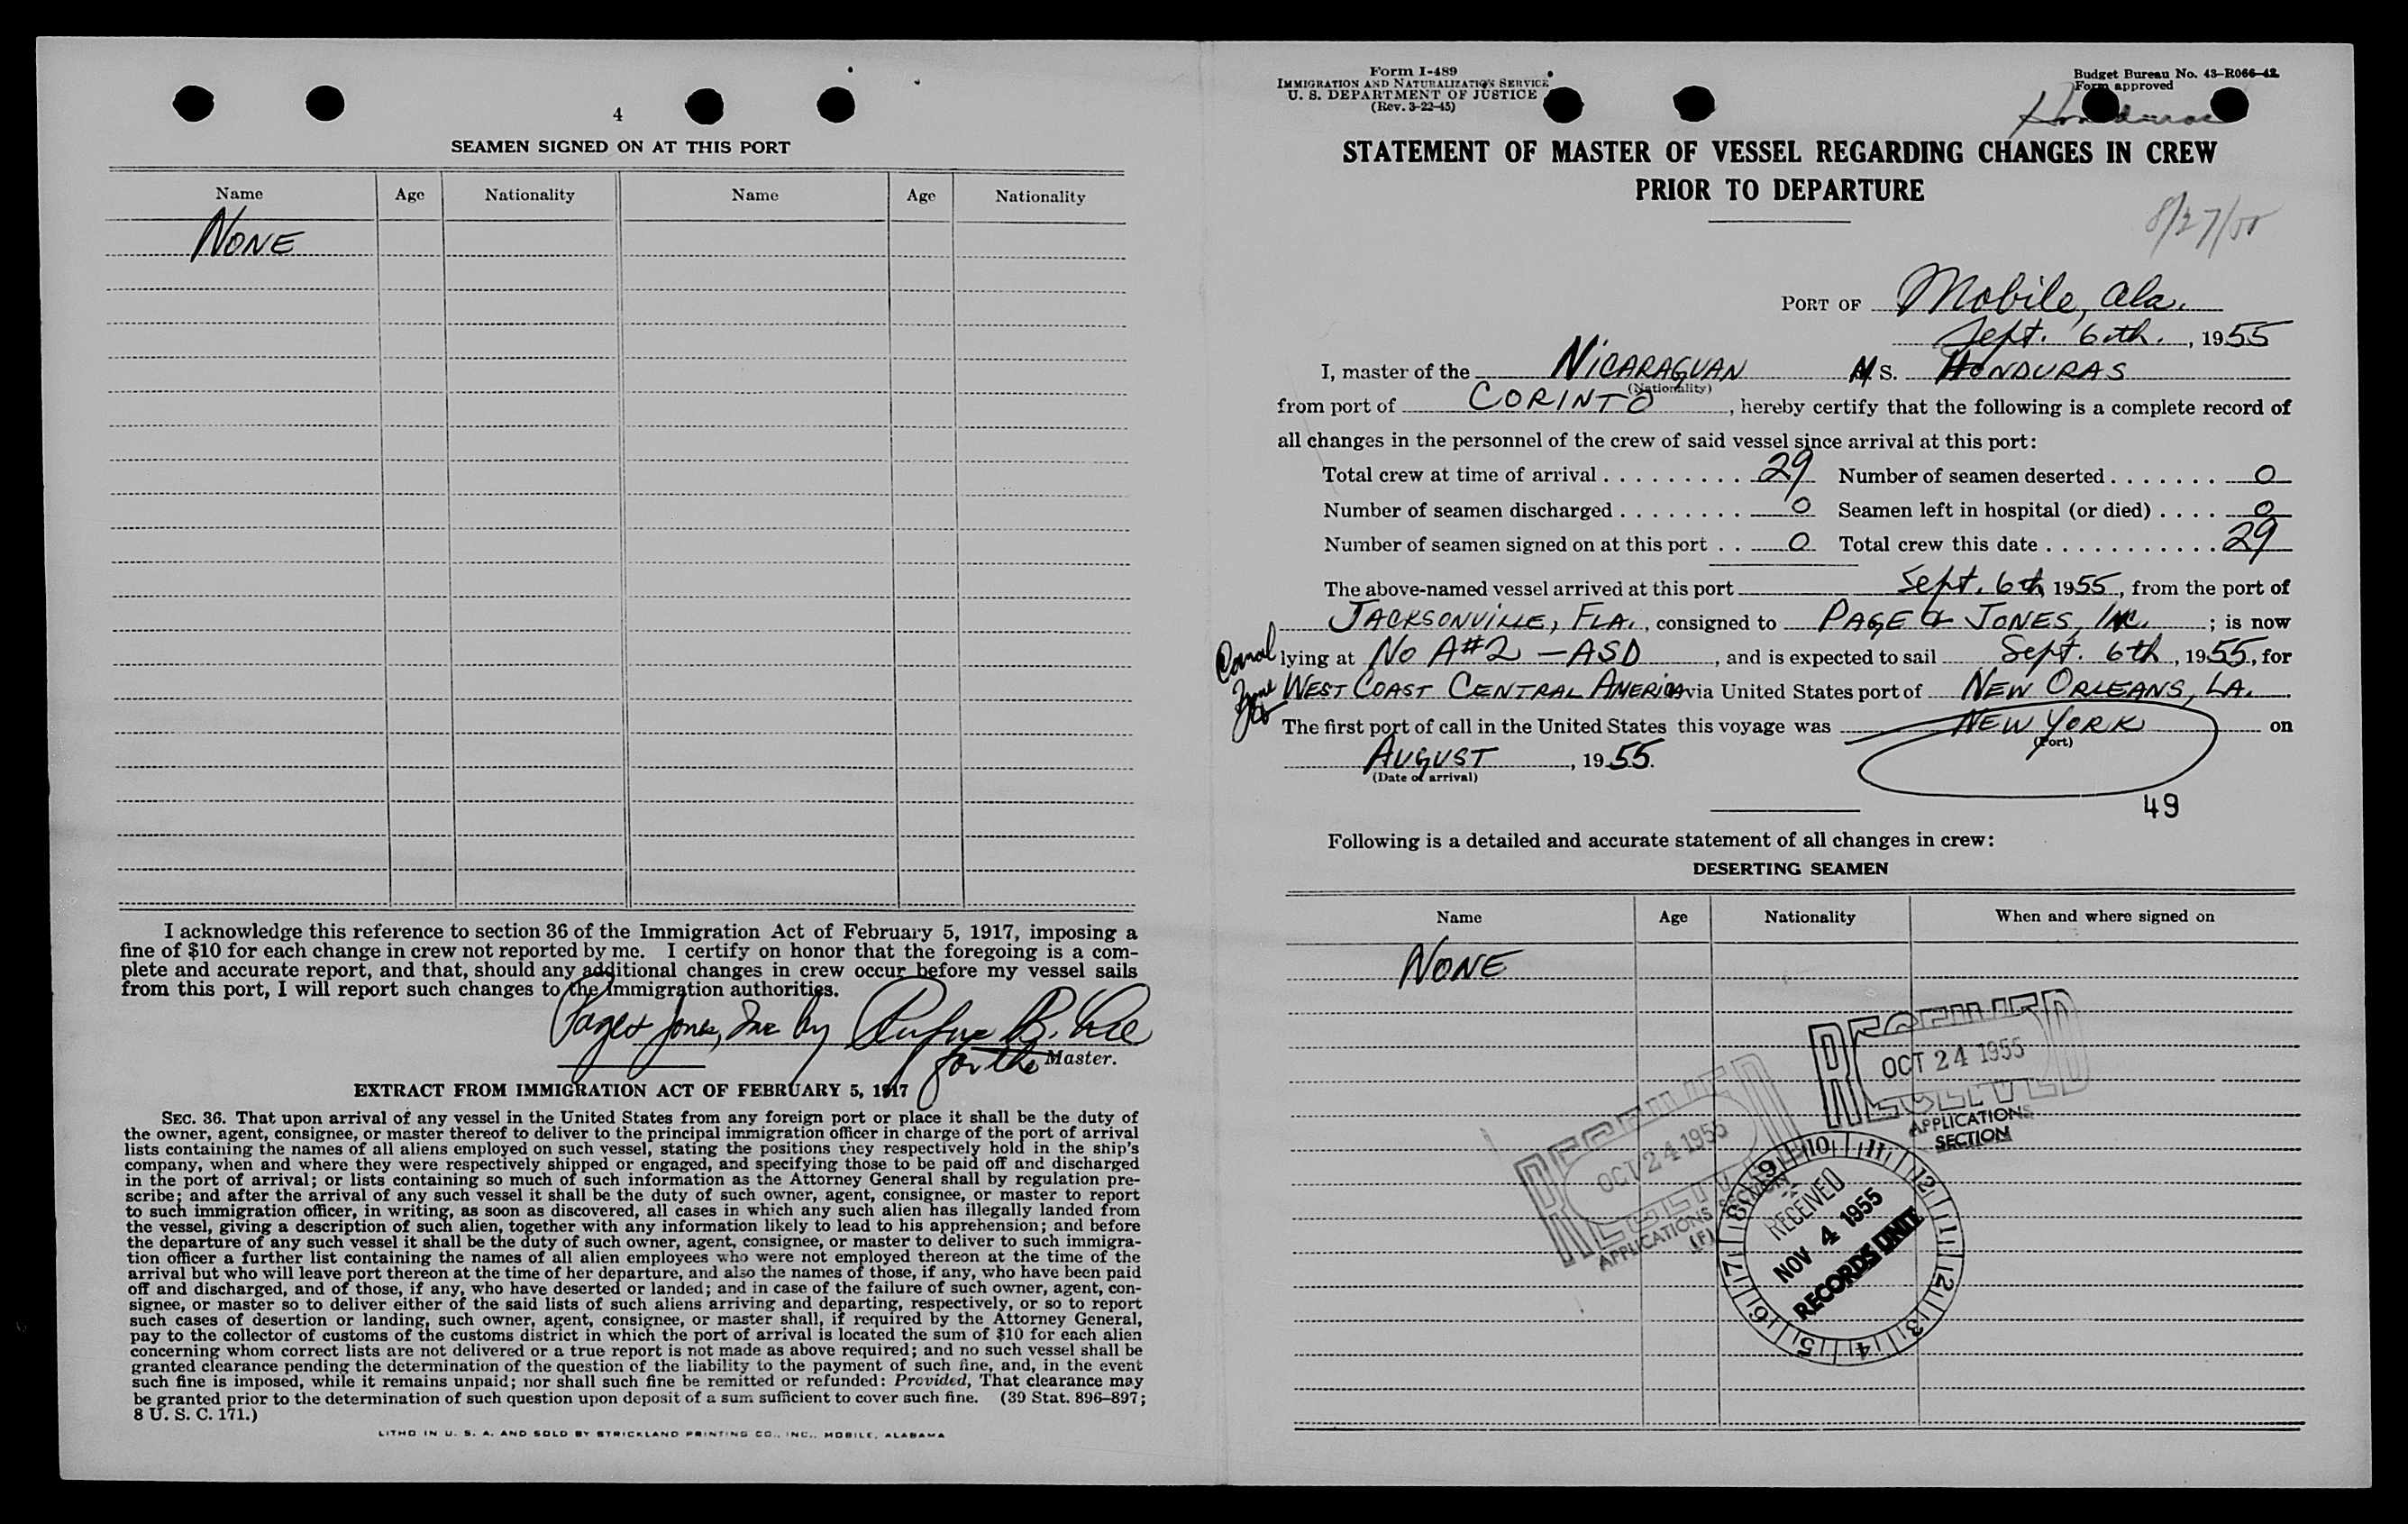 4
SEAMEN SIGNED ON AT THIS PORT
Name Age Nationality Name Age Nationality
NONE
I acknowledge this reference to section 36 of the Immigration Act of February 5, 1917, imposing a
fine of $10 for each change in crew not reported by me. I certify on honor that the foregoing is a com-
plete and accurate report, and that, should any additional changes in crew occur before my vessel sails
from this port, I will report such changes to the Immigration authorities.
Page & Jones, Inc by Rufus B.
for the Master.
EXTRACT FROM IMMIGRATION ACT OF FEBRUARY 5, 1917
SEC. 36. That upon arrival of any vessel in the United States from any foreign port or place it shall be the duty of
the owner, agent, consignee, or master thereof to deliver to the principal immigration officer in charge of the port of arrival
lists containing the names of all aliens employed on such vessel, stating the positions they respectively hold in the ship's
company, when and where they were respectively shipped or engaged, and specifying those to be paid off and discharged
in the port of arrival; or lists containing so much of such information as the Attorney General shall by regulation pre-
scribe; and after the arrival of any such vessel it shall be the duty of such owner, agent, consignee, or master to report
to such immigration officer, in writing, as soon as discovered, all cases in which any such alien has illegally landed from
the vessel, giving a description of such alien, together with any information likely to lead to his apprehension; and before
the departure of any such vessel it shall be the duty of such owner, agent, consignee, or master to deliver to such immigra-
tion officer a further list containing the names of all alien employees who were not employed thereon at the time of the
arrival but who will leave port thereon at the time of her departure, and also the names of those, if any, who have been paid
off and discharged, and of those, if any, who have deserted or landed; and in case of the failure of such owner, agent, con-
signee, or master so to deliver either of the said lists of such aliens arriving and departing, respectively, or so to report
such cases of desertion or landing, such owner, agent, consignee, or master shall, if required by the Attorney General,
pay to the collector of customs of the customs district in which the port of arrival is located the sum of $10 for each alien
concerning whom correct lists are not delivered or a true report is not made as above required; and no such vessel shall be
granted clearance pending the determination of the question of the liability to the payment of such fine, and, in the event
such fine is imposed, while it remains unpaid; nor shall such fine be remitted or refunded: Provided, That clearance may
be granted prior to the determination of such question upon deposit of a sum sufficient to cover such fine. (39 Stat. 896–897;
8 U. S. C. 171.)
LITHO IN U. S. A. AND SOLD BY STRICKLAND PRINTING CO., INC., MOBILE, ALABAMA
Form I-489
IMMIGRATION AND NATURALIZATION SERVICE
U. S. DEPARTMENT OF JUSTICE
(Rev. 3-22-45)
Budget Bureau No. 43-R066-42
Form approved
Honduras
STATEMENT OF MASTER OF VESSEL REGARDING CHANGES IN CREW
PRIOR TO DEPARTURE
8/27/55
PORT OF Mobile, Ala.
Sept. 6th., 1955
I, master of the NICARAGUAN M S. HONDURAS
(Nationality)
from port of CORINTO, hereby certify that the following is a complete record of
all changes in the personnel of the crew of said vessel since arrival at this port:
Total crew at time of arrival . . . . . . . . . 29 Number of seamen deserted . . . . . . . 0
Number of seamen discharged . . . . . . . . 0 Seamen left in hospital (or died) . . . . 0
Number of seamen signed on at this port . . 0 Total crew this date . . . . . . . . . . . 29
The above-named vessel arrived at this port Sept. 6th, 1955, from the port of
JACKSONVILLE, FLA., consigned to PAGE & JONES, INC. ; is now
lying at NO A#2 - ASD, and is expected to sail Sept. 6th, 1955, for
Canal Zone
WEST COAST CENTRAL AMERICA via United States port of NEW ORLEANS, LA.
The first port of call in the United States this voyage was NEW YORK on
(Port)
AUGUST, 1955.
(Date of arrival)
49
Following is a detailed and accurate statement of all changes in crew:
DESERTING SEAMEN
Name Age Nationality When and where signed on
NONE
RECEIVED
OCT 24 1955
RECEIVED
APPLICATIONS
SECTION
RECEIVED
OCT 24 1955
RECEIVED
APPLICATIONS SECTION
(F)
9 10 11 12 1 2 3 4 5 6 7 8
RECEIVED
NOV 4 1955
RECORDS UNIT